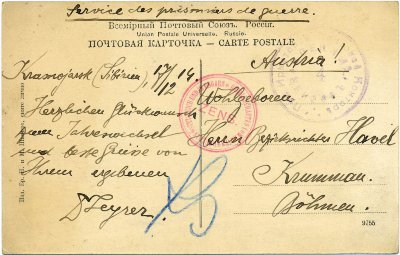 Service des prisonniers de guerre.
Всемірный Почтовый Союзъ. Россія.
Union Postale Universelle. Russie.
ПОЧТОВАЯ КАРТОЧКА — CARTE POSTALE
Austria!
Krasnojarsk (Sibirien) 17/12 14.
Herzlichen Glückwunsch
zum Jahreswechsel
und beste Grüsse von
Ihrem ergebenen
D Meyrer
Wohlgeboren
Herrn Bezirksrichter Havel
Krummau
Böhmen.
9755